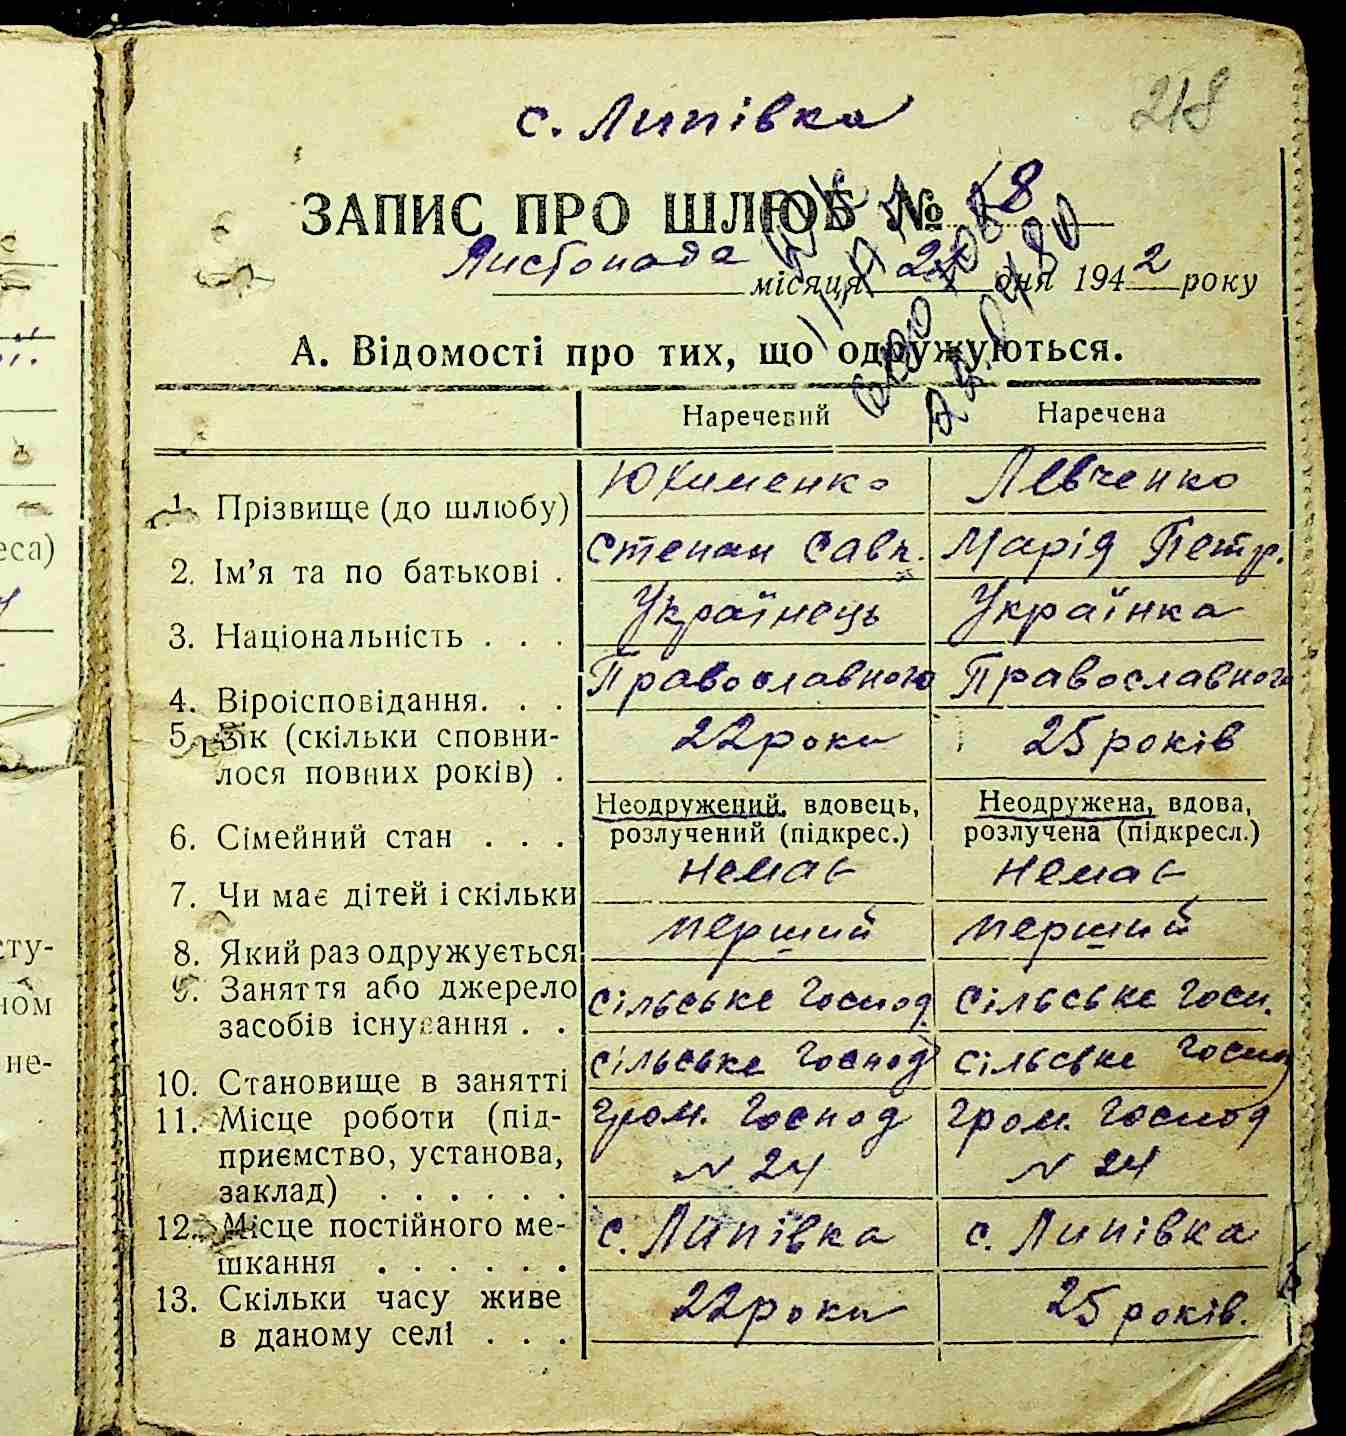 218
с. Липівка
ЗАПИС ПРО ШЛЮБ № 18
Листопада місяця 24 дня 1942 року
А. Відомості про тих, що одружуються.
Наречений Наречена
1. Прізвище (до шлюбу) Юхименко Левченко
2. Ім’я та по батькові . Степан Савк. Марія Петр.
3. Національність . . . Українець Українка
4. Віроісповідання. . . Православного Православного
5. Вік (скільки сповни-
лося повних років) . 22 роки 25 років
6. Сімейний стан . . . Неодружений, вдовець, Неодружена, вдова,
розлучений (підкрес.) розлучена (підкресл.)
7. Чи має дітей і скільки немає немає
8. Який раз одружується перший перший
9. Заняття або джерело
засобів існування . . сільське господ. сільське госп.
10. Становище в занятті сільське господ сільске господ
11. Місце роботи (під- Гром. Господ Гром. Господ
приємство, установа, N 24 N 24
заклад) . . . . . .
12. Місце постійного ме- с. Липівка с. Липівка
шкання . . . . . .
13. Скільки часу живе
в даному селі . . . 22 роки 25 років.
еса)
сту-
ном
не-